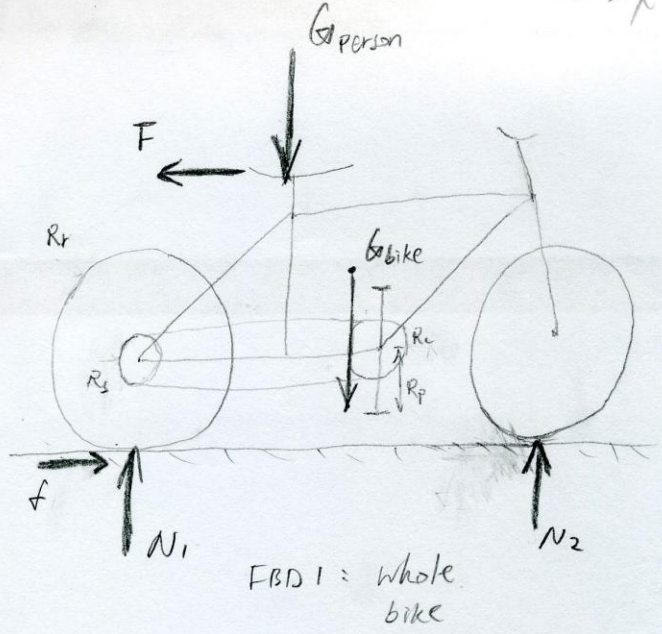 G person
F
Rr
G bike
Rc
Rs
Rp
f
N1
N2
FBD 1 : whole
bike